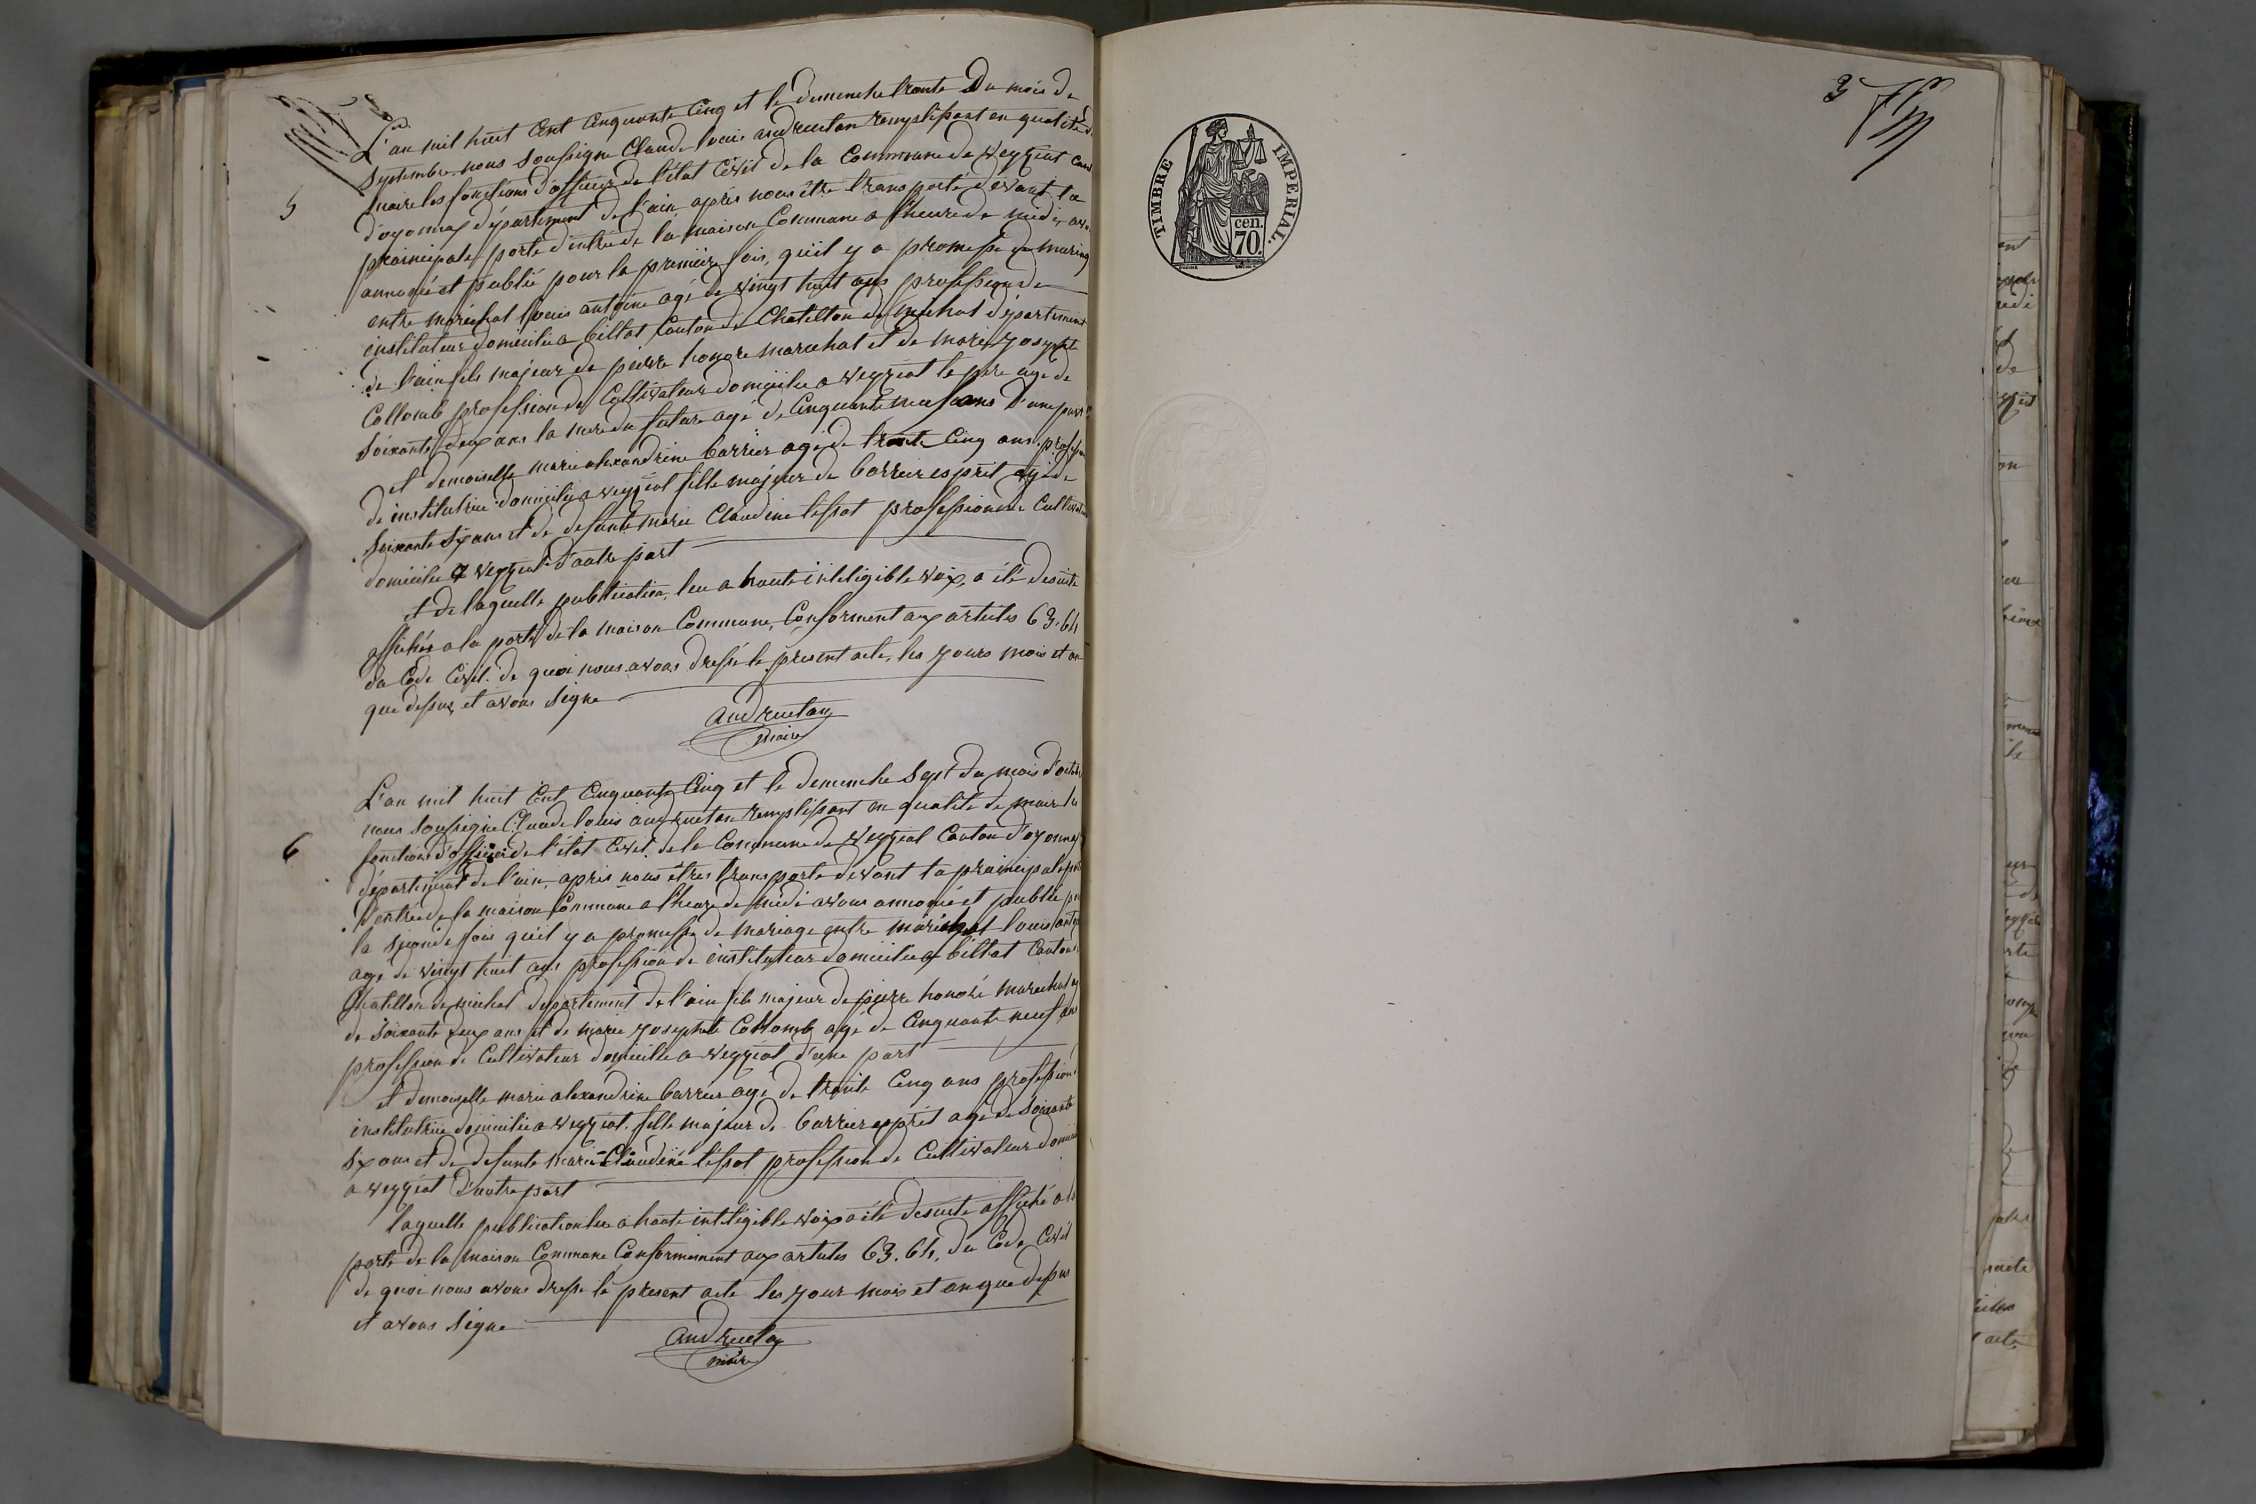 L'an mil huit Cent Cinquante Cinq et le dimenche trente Du mois de
Septembre nous Soussigne Claude louis andruetan remplissant en qualité de
maire les fonctions d'officier de l'état Civil de la Commune de Veyziat Can
5
d'oyonnax département de l'ain, après nous être transporté devant la
prainipale porte d'entré de la maison Commune a l'heure de midi, avo
annoncé et publié pour la première fois, qu'il y a promesse de mariag
entre maréchal louis antoine agé de vingt huit ans profession de
instituteur domicilie a billiat Canton de Chatillon de michal département
de l'ain fils majeur de pierre honore marechal et de marie josephte
Collomb profession de Cultivateur domicilie a Veyziat le pere age de
Soixante deux ans la mere du futur agé de Cinquante neuf ans D'une part
et demoiselle marie alexandrine barrier age de trente Cinq ans profession
de institutrice domicilie a veyziat fille majeur de barrier esprit agé de
Soixante Six ans et de defunte marie Claudine tissot profession de Cultivat
domicilie a Veyziat D'autre part
et de laquelle publication, leu a haute intelligible voix, a été desuite
affichée a la porte de la maison Commune, Conforment aux articles 63. 64
du Code Civil. de quoi nous avons dressé le present acte, les jours mois et an
que dessus et avons Signe
andruetan
maire
L'an mil huit Cent Cinquante Cinq et le demenche Sept du mois d'octob
nous Soussigne Claude louis andruetan remplissant en qualité de maire la
6
fonctions d'officier de l'état Civil de la Commune de Veyziat Canton d'oyonnax
département de l'ain, après nous êtres transporte devant la prainipale port
d'entrée de la maison Commune a l'heure de midi avons annoncé et publié pou
la Seconde fois qu'il y a promesse de mariage entre maréchal louis anto
agé de vingt huit ans profession de instituteur domicilie a billiat Canton
Chatillon de michal departement de l'ain fils majeur de pierre honoré marechal ag
de Soixante deux ans et de marie josephte Collomb agé de Cinquante neuf ans
profession de Cultivateur domicilie a Veyziat d'une part
et demoiselle marie alexandrine barrier age de trente Cinq ans profession
institutrice domicilie a Veyziat. fille majeur de barrier esprit agé de Soixante
Six ans et de defunte marie Claudine tissot profession de Cultivateur domici
a Veyziat D'autre part
laquelle publication leu a haute intelligible voix a été desuite affiché a la
porte de la maison Commune Conformement aux articles 63. 64. du Code Civil
de quoi nous avons dresse le present acte les jour mois et an que dessus
et avons Signe
andruetan
maire
3
TIMBRE IMPERIAL.
cen.
70.